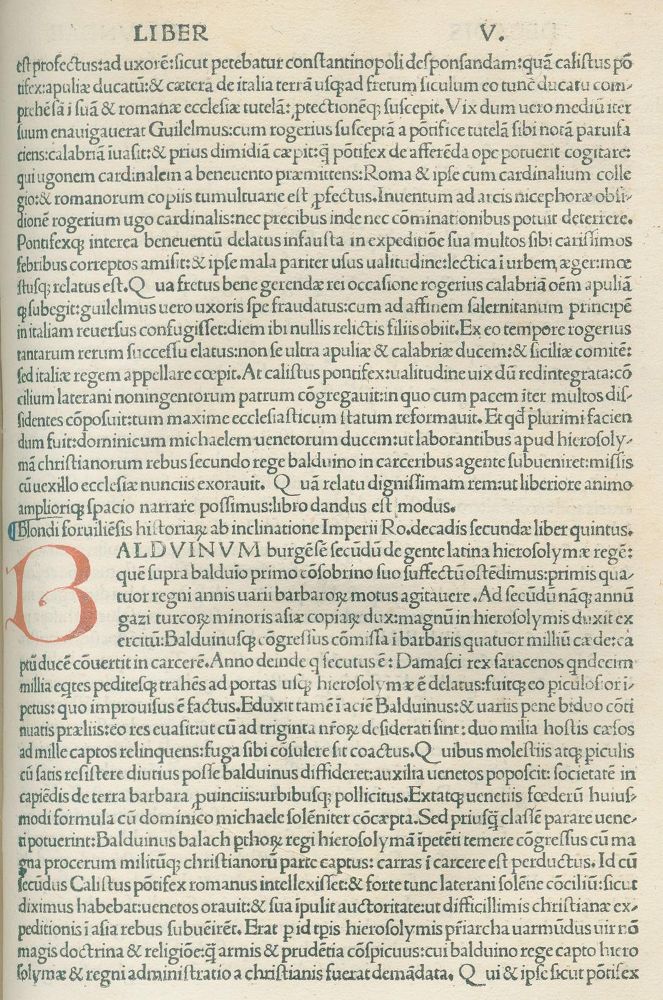 LIBER V.
est profectus:ad uxorē:sicut petebatur constantinopoli desponsandam:quā calistus pō
tifex:apuliæ ducatū:& cætera de italia terrā usq;ad fretum siculum eo tunc ducatu com-
prehēsā ī suā & romanæ ecclesiæ tutelā: ꝓtectionēq; suscepit. Vix dum uero mediū iter
suum enauigauerat Guilelmus:cum rogerius susceptā a pōtifice tutelā sibi notā paruifa
ciens:calabriā īuasit:& prius dimidiā cæpit:q̄ pōtifex de afferēda ope potuerit cogitare:
qui ugonem cardinalem a beneuento præmittens:Roma & ipse cum cardinalium colle
gio:& romanorum copiis tumultuarie est ꝓfectus.Inuentum ad arcis nicephoræ obsi-
dionē rogerium ugo cardinalis:nec precibus inde nec cōminationibus potuit deterrere.
Pontifexq; interea beneuentū delatus infausta in expeditiōe sua multos sibi carissimos
febribus correptos amisit:& ipse mala pariter usus ualitudine:lectica ī urbem,æger:mœ
stusq; relatus est.Q ua fretus bene gerendæ rei occasione rogerius calabriā oēm apuliā
q; subegit:guilelmus uero uxoris spe fraudatus:cum ad affinem salernitanum principē
in italiam reuersus confugisset:diem ibi nullis relictis filiis obiit.Ex eo tempore rogerius
tantarum rerum successu elatus:non se ultra apuliæ & calabriæ ducem:& siciliæ comitē:
sed italiæ regem appellare cœpit.At calistus pontifex:ualitudine uix dū redintegrata:cō
cilium laterani noningentorum patrum cōgregauit:in quo cum pacem iter multos dis-
sidentes cōposuit:tum maxime ecclesiasticum statum reformauit. Et qđ plurimi facien
dum fuit:dominicum michaelem uenetorum ducem:ut laborantibus apud hierosoly-
mā christianorum rebus secundo rege balduino in carceribus agente subueniret:missis
cū uexillo ecclesiæ nunciis exorauit. Q uā relatu dignissimam rem:ut liberiore animo
ampliorīq; spacio narrare possimus:libro dandus est modus.
¶Blondi foruiliēsis historiaꝝ ab inclinatione Imperii Ro.decadis secundæ liber quintus.
BALDVINVM burgēsē secūdū de gente latina hierosolymæ regē:
quē supra balduīo primo cōsobrino suo suffectū ostēdimus:primis qua-
tuor regni annis uarii barbaroꝝ motus agitauere. Ad secūdū nāq; annū
gazi turcoꝝ minoris asiæ copiaꝝ dux:magnū in hierosolymis duxit ex
ercitū:Balduinusq; cōgressus cōmissa ī barbaris quatuor milliū cæde:ca
ptū ducē cōuertit in carcerē.Anno deinde q secutus ē: Damasci rex saracenos qndecim
millia eq̄tes peditesq; trahēs ad portas usq; hierosolymæ ē delatus:fuitq; eo piculosior ī-
petus: quo improuisus ē factus.Eduxit tamē ī aciē Balduinus:& uariis pene biduo cōti
nuatis præliis:eo res euasit:ut cū ad triginta nr̄oꝝ desiderati sint: duo milia hostis cæsos
ad mille captos relinquens:fuga sibi cōsulere sit coactus.Q uibus molestiis atq; piculis
cū satis resistere diutius posse balduinus diffideret:auxilia uenetos poposcit: societatē in
capiēdis de terra barbara ꝓuinciis:urbibusq; pollicitus.Extatq; uenetiis fœderū huius-
modi formula cū dominico michaele solēniter cōcæpta.Sed priusq̄ classē parare uene-
ti potuerint:Balduinus balach pthoꝝ regi hierosolymā īpetēti temere cōgressus cū ma
gna procerum militūq; christianorū parte captus: carras ī carcere est perductus. Id cū
secūdus Calistus pōtifex romanus intellexisset:& forte tunc laterani solēne cōciliū:sicut
diximus habebat:uenetos orauit:& sua īpulit auctoritate:ut difficillimis christianæ ex-
peditionis ī asia rebus subueīrēt. Erat p id tpis hierosolymis pr̄iarcha uarmūdus uir nō
magis doctrina & religiōe:q̄ armis & prudētia cōspicuus:cui balduino rege capto hiero
solymæ & regni administratio a christianis fuerat demādata. Q ui & ipse sicut pōtifex